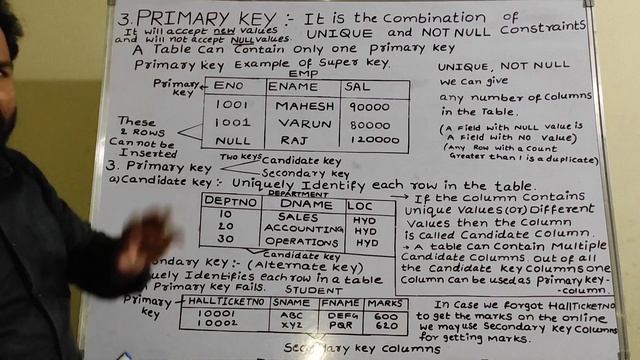 3. PRIMARY KEY :- It is the Combination of
It will accept new values UNIQUE and NOT NULL Constraints
and will not accept NULL values.
A Table Can Contain Only one primary key
Primary key Example of Super key.
EMP
Primary key
ENO ENAME SAL
1001 MAHESH 90000
1001 VARUN 80000
NULL RAJ 120000
These
2 ROWS
Cannot be
Inserted
UNIQUE, NOT NULL
we can give
any number of Columns
in the Table.
(A Field with NULL value is
A Field with NO value)
(Any Row with a Count
Greater than 1 is a duplicate)
3. Primary key Two keys Candidate key
Secondary key
a) Candidate key :- Uniquely Identify each row in the table.
DEPARTMENT
DEPTNO DNAME LOC
10 SALES HYD
20 ACCOUNTING HYD
30 OPERATIONS HYD
Candidate key
→ If the column Contains
Unique values (or) Different
Values then the Column
is Called Candidate Column.
→ A table Can Contain Multiple
Candidate Columns. Out of all
the Candidate Key Columns one
Column can be used as Primary key-
-column.
key :- (Alternate key)
Identifies each row in a table
Primary key Fails. STUDENT
Primary key
HALLTICKETNO SNAME FNAME MARKS
10001 ABC DEFG 600
10002 XYZ PQR 620
Secondary key columns
In Case we Forgot HallTicketNO
to get the Marks on the online
we may use Secondary key Columns
for getting Marks.